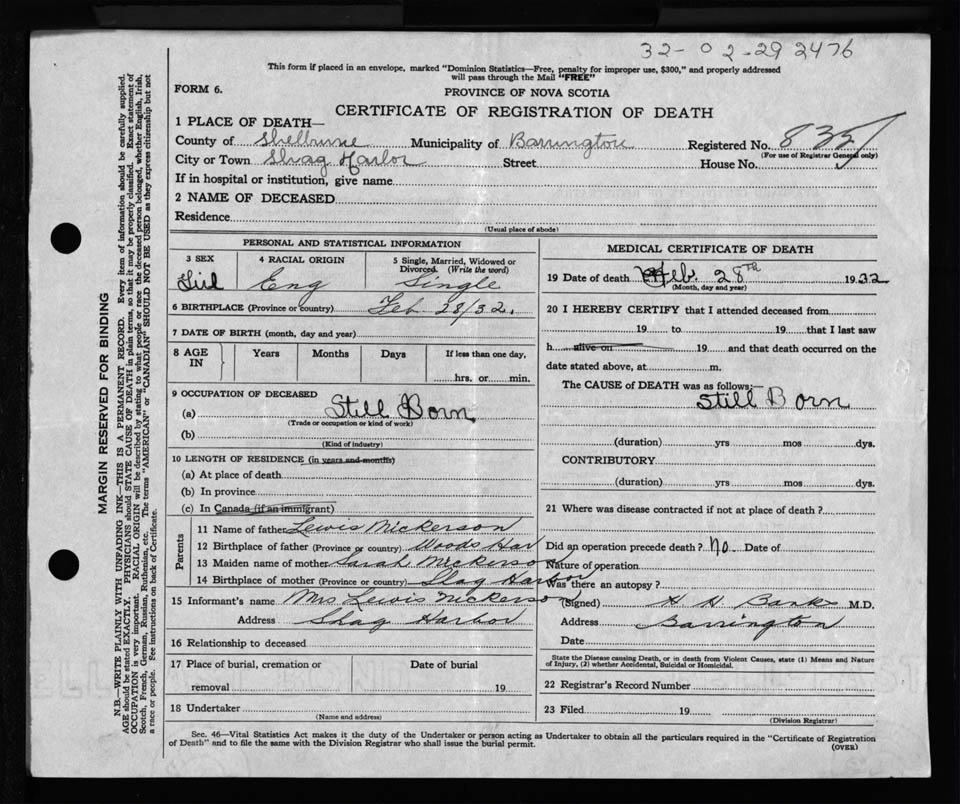 32-02-29 2476
This form if placed in an envelope, marked "Dominion Statistics—Free, penalty for improper use, $300," and properly addressed
will pass through the Mail "FREE"
FORM 6.
PROVINCE OF NOVA SCOTIA
CERTIFICATE OF REGISTRATION OF DEATH
1 PLACE OF DEATH—
County of Shelburne Municipality of Barrington Registered No. 835
(For use of Registrar General only)
City or Town Shag Harbor Street House No.
If in hospital or institution, give name
2 NAME OF DECEASED
Residence
(Usual place of abode)
MARGIN RESERVED FOR BINDING
N.B.—WRITE PLAINLY WITH UNFADING INK—THIS IS A PERMANENT RECORD. Every item of information should be carefully supplied.
AGE should be stated EXACTLY. PHYSICIANS should STATE CAUSE OF DEATH in plain terms, so that it may be properly classified. Exact statement of
OCCUPATION is very important. RACIAL ORIGIN will be described by stating to what people or race the deceased person belonged, whether English, Irish,
Scotch, French, German, Russian, Ruthenian, etc. The terms "AMERICAN" or "CANADIAN" SHOULD NOT BE USED as they express citizenship but not
a race or people. See instructions on back of Certificate.
PERSONAL AND STATISTICAL INFORMATION
3 SEX
Girl
4 RACIAL ORIGIN
Eng
5 Single, Married, Widowed or
Divorced. (Write the word)
Single
6 BIRTHPLACE (Province or country) Feb 28/32.
7 DATE OF BIRTH (month, day and year)
8 AGE
IN
Years
Months
Days
If less than one day,
hrs. or min.
9 OCCUPATION OF DECEASED
(a) Still Born
(Trade or occupation or kind of work)
(b)
(Kind of industry)
10 LENGTH OF RESIDENCE (in years and months)
(a) At place of death
(b) In province
(c) In Canada (if an immigrant)
Parents
11 Name of father Lewis Nickerson
12 Birthplace of father (Province or country) Woods Har
13 Maiden name of mother Sarah Nickerson
14 Birthplace of mother (Province or country) Shag Harbor
15 Informant's name Mrs Lewis Nickerson
Address Shag Harbor
16 Relationship to deceased
17 Place of burial, cremation or
removal
Date of burial
19
18 Undertaker
(Name and address)
MEDICAL CERTIFICATE OF DEATH
19 Date of death Feb. 28th 1932
(Month, day and year)
20 I HEREBY CERTIFY that I attended deceased from
19 to 19 that I last saw
h alive on 19 and that death occurred on the
date stated above, at m.
The CAUSE of DEATH was as follows:—
Still Born
(duration) yrs mos dys.
CONTRIBUTORY
(duration) yrs mos dys.
21 Where was disease contracted if not at place of death?
Did an operation precede death? No. Date of
Nature of operation
Was there an autopsy?
(Signed) H H Banks M.D.
Address Barrington
Date
State the Disease causing Death, or in death from Violent Causes, state (1) Means and Nature
of Injury, (2) whether Accidental, Suicidal or Homicidal.
22 Registrar's Record Number
23 Filed 19
(Division Registrar)
Sec. 46—Vital Statistics Act makes it the duty of the Undertaker or person acting as Undertaker to obtain all the particulars required in the "Certificate of Registration
of Death" and to file the same with the Division Registrar who shall issue the burial permit.
(OVER)